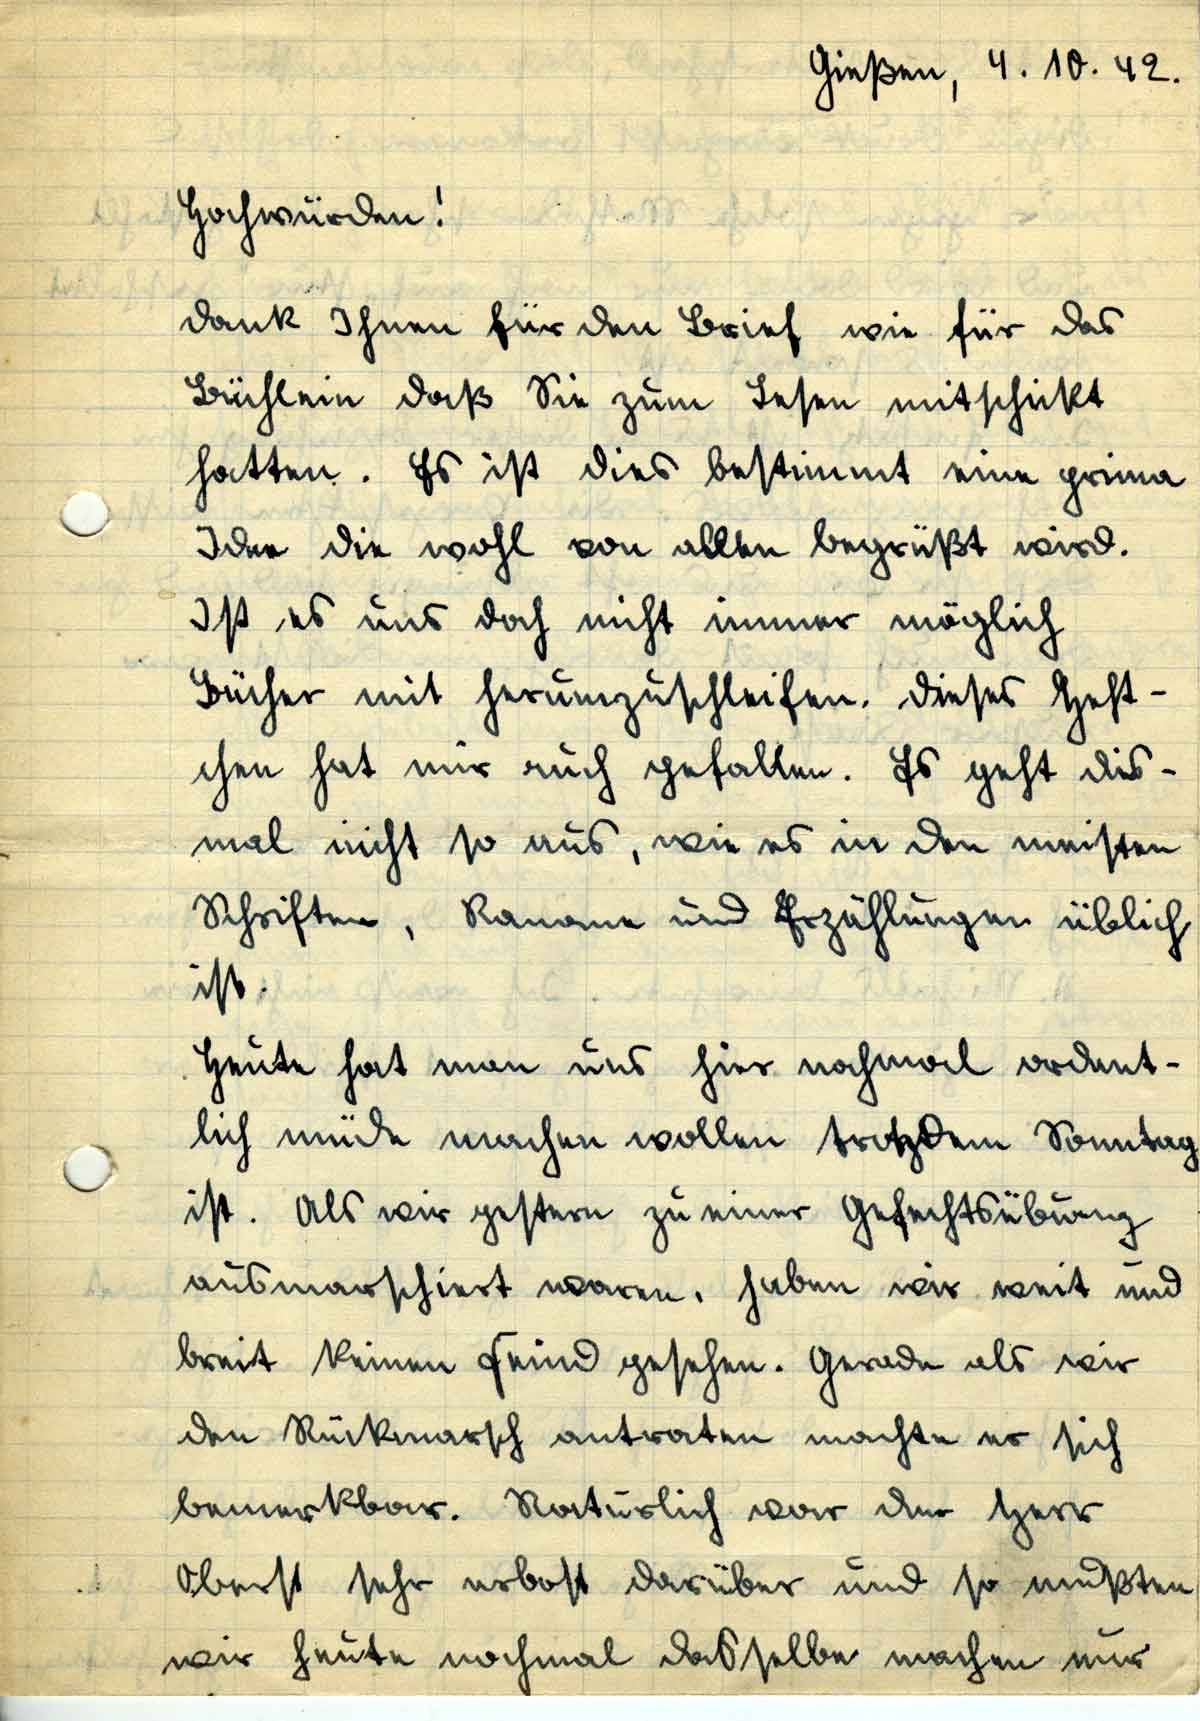 Gießen, 4. 10. 42.
Hochwürden!
dank Ihnen für den Brief wie für das
Büchlein daß Sie zum Lesen mitschikt
hatten. Es ist dies bestimmt eine prima
Idee die wohl von allen begrüßt wird.
Ist es uns doch nicht immer möglich
Bücher mit herumzuschleifen. Dieses Heft-
chen hat mir auch gefallen. Es geht dies-
mal nicht so aus, wie es in den meisten
Schriften, Romane und Erzählungen üblich
ist.
Heute hat man uns hier nochmal ordent-
lich müde machen wollen trotzdem Sonntag
ist. Als wir gestern zu einer Gefechtsübung
ausmarschiert waren, haben wir weit und
breit keinen Feind gesehen. Gerade als wir
den Rückmarsch antraten machte er sich
bemerkbar. Natürlich war der Herr
Oberst sehr erbost darüber und so mußten
wir heute nochmal dasselbe machen nur